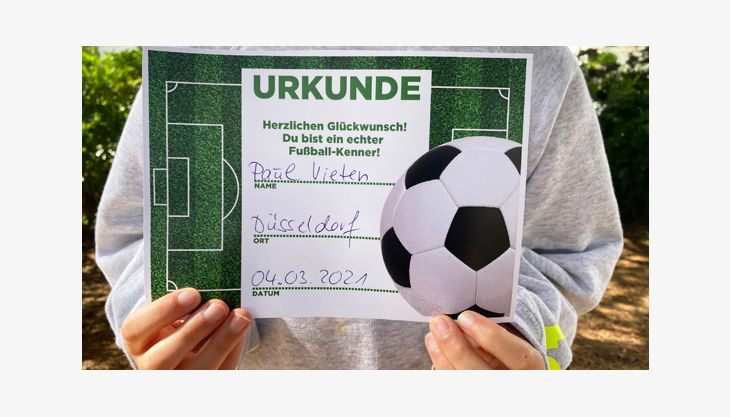 URKUNDE
Herzlichen Glückwunsch!
Du bist ein echter
Fußball-Kenner!
Paul Vieten
NAME
Düsseldorf
ORT
04.03.2021
DATUM